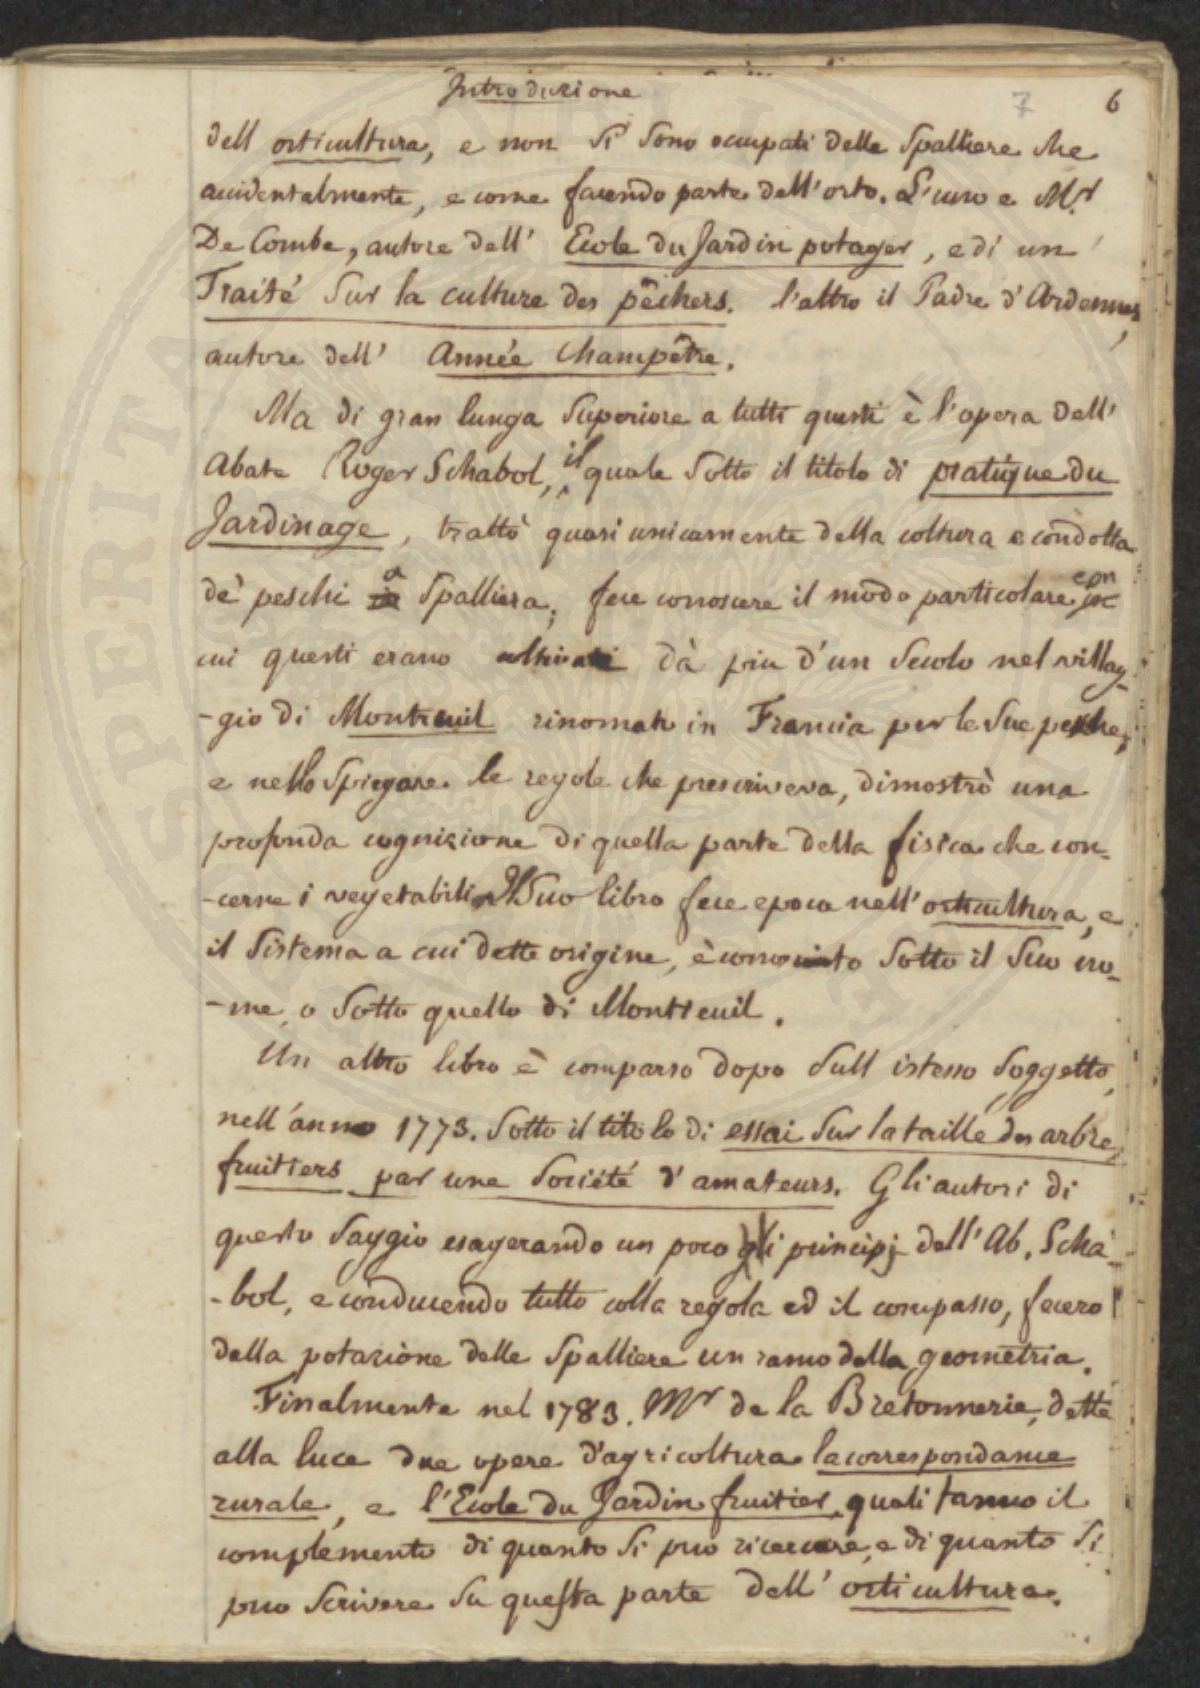 Introduzione
7 6
dell orticultura, e non si sono ocupati delle Spalliere che
accidentalmente, e come facendo parte dell'orto. L'uno e Mr.
De Combe, autore dell' Ecole du Jardin potager, e di un
Traité sur la culture des pêchers. l'altro il Padre d'Ardennes,
autore dell' Année Champêtre.
Ma di gran lunga superiore a tutti questi è l'opera dell'
Abate Roger Schabol, il quale sotto il titolo di pratique du
Jardinage, trattò quasi unicamente della coltura e condotta
de' peschi a Spalliera; fece conoscere il modo particolare con
cui questi erano coltivati dà piu d'un secolo nel villag-
-gio di Montreuil rinomato in Francia per le sue pesche,
e nello spiegare le regole che prescriveva, dimostrò una
profonda cognizione di quella parte della fisica che con-
-cerne i vegetabili. Il suo libro fece epoca nell' orticultura, e
il sistema a cui dette origine, è conosciuto sotto il suo no-
-me, o sotto quello di Montreuil.
Un altro libro è comparso dopo sull istesso soggetto,
nell'anno 1773. sotto il titolo di essai sur la taille des arbres
fruitiers par une société d'amateurs. Gli autori di
questo saggio esagerando un poco gli principj dell' Ab. Scha-
-bol, e conducendo tutto colla regola ed il compasso, fecero
della potazione delle Spalliere un ramo della geometria.
Finalmente nel 1783. Mr de la Bretonnerie, dette
alla luce due opere d'agricoltura la correspondance
rurale, e l'Ecole du Jardin fruitier, quali fanno il
complemento di quanto si puo ricercare, e di quanto si
puo scrivere su questa parte dell' orticultura.